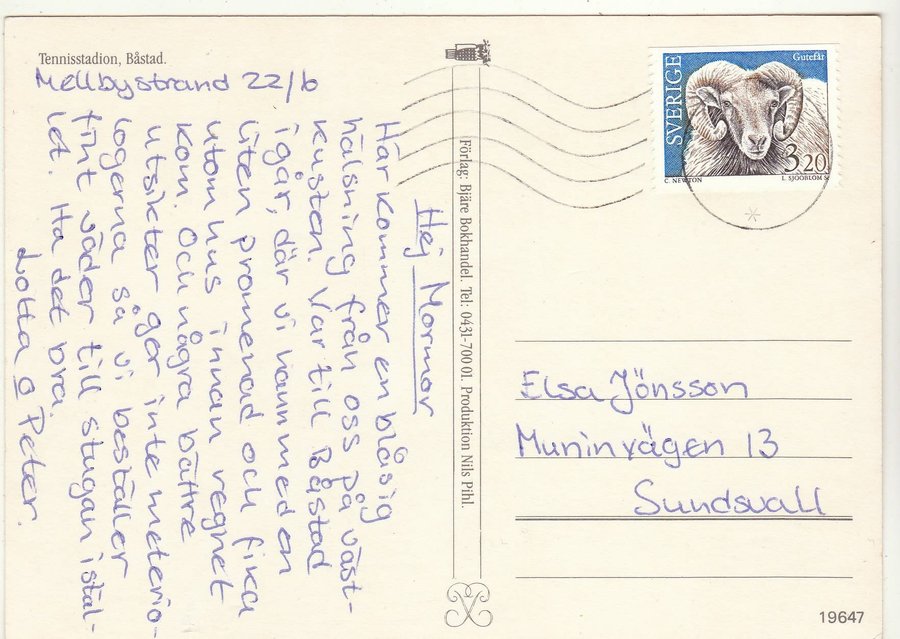 Tennisstadion, Båstad.
Mellbystrand 22/6
Hej Mormor
Här kommer en blåsig
hälsning från oss på väst-
kusten. Var till Båstad
igår, där vi hann med en
liten promenad och fika
utomhus innan regnet
kom. Och några bättre
utsikter ger inte meterio-
logerna så vi beställer
fint väder till stugan istäl-
let. Ha det bra.
Lotta o Peter.
Förlag: Bjäre Bokhandel. Tel: 0431-700 01. Produktion Nils Pihl.
SVERIGE
Gutefår
3.20
C. NEWTON
L. SJÖÖBLOM S
Elsa Jönsson
Muninvägen 13
Sundsvall
19647